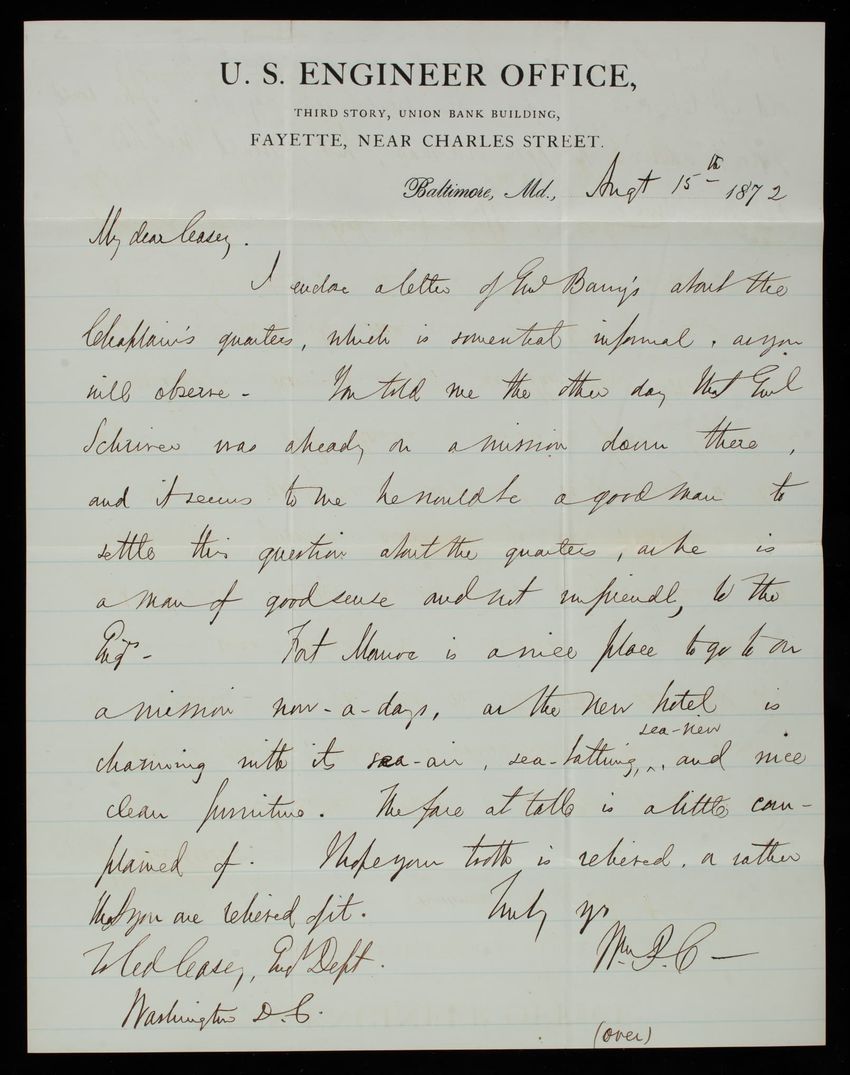 U. S. ENGINEER OFFICE,
THIRD STORY, UNION BANK BUILDING,
FAYETTE, NEAR CHARLES STREET.
Baltimore, Md., Augt 15th 1872
My dear Casey.
I enclose a letter of Genl Barry's about the
Chaplain's quarters, which is somewhat informal, as you
will observe - You told me the other day that Genl
Schriver was already on a mission down there,
and it seems to me he would be a good man to
settle this question about the quarters, as he is
a man of good sense and not unfriendly to the
Engrs - Fort Monroe is a nice place to go to on
a mission now-a-days, as the new hotel is
charming with its sea-air, sea-bathing, sea-view, and nice
clean furniture. The fare at table is a little com-
plained of. I hope your tooth is relieved, or rather
that you are relieved of it. Truly yrs
Wm. P. C -
To Col Casey, Engr Dept.
Washington D.C.
(over)